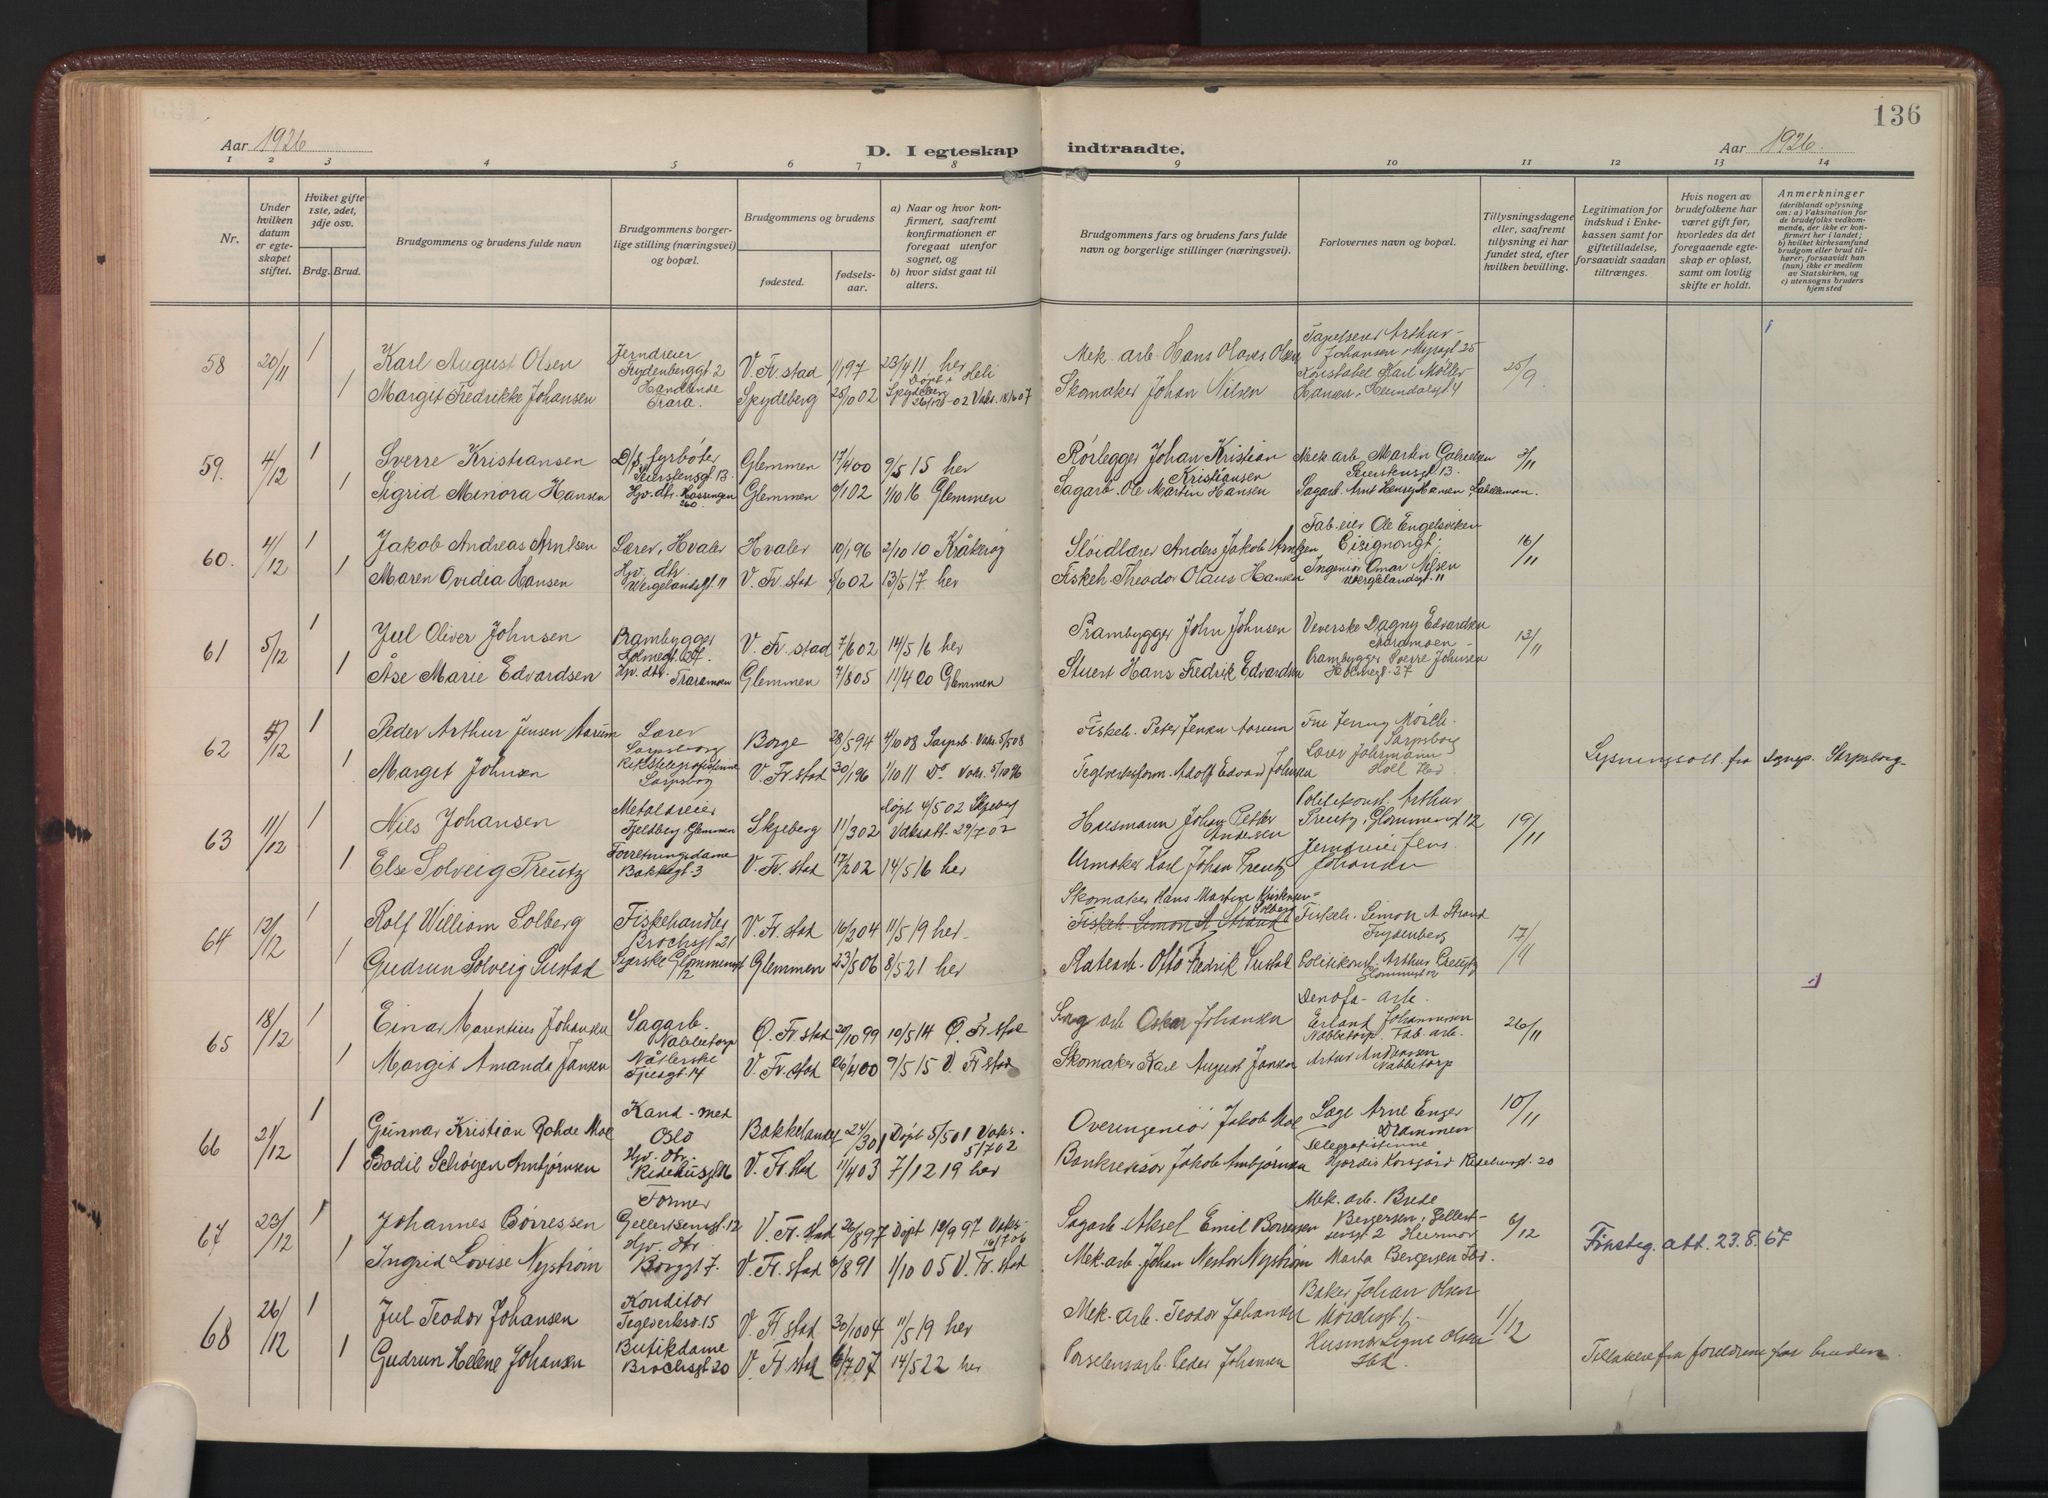 136
Aar 1926
D. I egteskap indtraadte.
Aar 1926.
1 2 3 4 5 6 7 8 9 10 11 12 13 14
Nr.
Under hvilken datum er egteskapet stiftet.
Hviket gifte 1ste, 2det, 3dje osv.
Brdg. Brud.
Brudgommens og brudens fulde navn
Brudgommens borgerlige stilling (næringsvei) og bopæl.
Brudgommens og brudens
fødested.
fødselsaar.
a) Naar og hvor konfirmert, saafremt konfirmationen er foregaat utenfor sognet, og
b) hvor sidst gaat til alters.
Brudgommens fars og brudens fars fulde navn og borgerlige stillinger (næringsvei).
Forlovernes navn og bopæl.
Tillysningsdagene eller, saafremt tillysning ei har fundet sted, efter hvilken bevilling.
Legitimation for indskud i Enkekassen samt for giftetilladelse, forsaavidt saadan tiltrænges.
Hvis nogen av brudefolkene har været gift før, hvorledes da det foregaaende egteskap er opløst, samt om lovlig skifte er holdt.
Anmerkninger
(deriblandt oplysning om: a) Vaksination for de brudefolks vedkommende, der ikke er konfirmert her i landet; b) hvilket kirkesamfund brudgom eller brud tilhører, forsaavidt han (hun) ikke er medlem av Statskirken, og c) utensogns bruders hjemsted
58 20/11 1 Karl August Olsen Jerndreier Frydenberggt 2 V. Fr. stad 1/1 97 23/4 11 her Mek. arb. Hans Olaves Olsen Tapetserer Arthur Johansen, Myragt 25 25/9
1 Margit Fredrikke Johansen Handlende Trara. Spydeberg 25/10 02 Døpt i Heli Spydeberg Skomaker Johan Nilsen Konstabel Karl Møller Hansen, Heimdalsgt 4
59. 4/12 1 Sverre Kristiansen D/s fyrbøter Seierstensgt. 13 Glemmen 17/4 00 9/5 15 her Rørlegger Johan Kristian Kristiansen Mek arb. Martin Gabrielsen 13. 3/11
1 Sigrid Minora Hansen Hjv. dtr. Glemmen 6/1 02 1/10 16 Glemmen Sagarb. Ole Martin Hansen Sagarb. Arnt Henry Hansen
60. 4/12 1 Jakob Andreas Arntsen Lærer, Hvaler Hvaler 10/1 96 2/10 10 Kråkerøy Sløidlærer Anders Jakob Arntsen Fab. eier Ole Engelsviken 16/11
1 Maren Ovidia Hansen Hjv. dtr. Wergelandsgt 11 V. Fr. stad 8/6 02 13/5 17. her Fiskeh. Theodor Olaus Hansen Ingeniør Omar Nilsen Wergelandsgt. 11
61 5/12 1 Jul Oliver Johnsen Prambygger Holmegt. 27. V. Fr. stad 7/6 02 14/5 16 her Prambygger John Johnsen Veverske Dagny Edvardsen Traramoen 13/11
1 Åse Marie Edvardsen Hjv. dtr. Traramoen Glemmen 7/8 05 11/4 20 Glemmen Stuert Hans Fredrik Edvardsen Prambygger Sverre Johnsen Holmegt. 27
62 5/12 1 Peder Arthur Jensen Aarum Lærer Sarpsborg Borge 28/5 94 4/10 08 Sarpsb. Vaks. 5/5 08 Fiskeh. Peter Jensen Aarum Fru Jenny Mørch. Sarpsborg
1 Margit Johnsen Rikstelegrafistinne Sarpsborg V. Fr. stad 30/1 96 1/10 11 Do Vaks. 5/10 96 Teglverksform. Adolf Edvard Johnsen Lærer Johrmann Hoel Ibd. Lysningsatt fra sognep. Sarpsborg
63 11/12 1 Nils Johansen Metaldreier Fjeldberg Glemmen Skjeberg 11/3 02 døpt 4/5 02 Skjeberg Vaksatt. 29/7 02 Husmann Johan Petter Andersen Politikonst. Arthur Preutz, Glommengt 12 19/11
1 Else Solveig Preutz Forretningsdame Bakkegt. 3 V. Fr. stad 17/2 02 14/5 16 her Urmaker Karl Johan Preutz Jerndreier Jens Johansen
64 12/12 1 Rolf William Solberg Fiskehandler Brochsgt 21 V. Fr. stad 16/2 04 11/5 19 her. Skomaker Hans Martin Kristensen Solberg Fiskeh. Simon A Strand Fiskeh. Simon A Strand Frydenberg 17/4
1 Gudrun Solveig Sustad Syerske Glommengt 12 Glemmen 23/5 06 8/5 21 her Otto Fredrik Sustad Politikonst. Arthur Preutz Glommengt 12
65 18/12 1 Einar Marentius Johansen Sagarb. Nabbetorp Ø. Fr. stad 20/10 99 10/5 14 Ø. Fr. stad Sag arb Oskar Johansen Denofa-arb. Erland Johannesen Nabbetorp. Fab. arb. 26/11
1 Margit Amanda Jansen Nåtlerske V. Fr. stad 26/4 00 9/5 15 V. Fr. stad Skomaker Karl August Jansen Artur Andersen Nabbetorp
66 21/12 1 Gunnar Kristian Rohde Moe Kand-med Oslo Bakkelandet 24/3 01 Døpt 5/5 01 Vaks. 5/7 02 Overingeniør Jakob Moe Læge Arne Enger Drammen 10/11
1 Bodil Schøyen Arnbjørnsen Hjv. dtr. Ridehusgt 16 V. Fr. stad 11/4 03 7/12 19 her Bankrevisor Jakob Arnbjørnsen Telegrafistinne Hjørdis Korsgård Ridehusgt. 20
67 23/12 1 Johannes Børressen Former Gellertsensgt. 12 V. Fr. stad 26/8 97 Døpt 12/9 97 Vaks. 16/7 06 Sagarb. Aksel Emil Børresen Mek. arb. Brede Bergersen, Gellertsensgt 2 Husmor 6/12
1 Ingrid Lovise Nystrøm Hjv. dtr. Borggt 7. V. Fr. stad 6/8 91 1/10 05 V. Fr. stad Mek. arb. Johan Nestor Nystrøm Marta Bergersen Ibd. Fønsteg. att. 23.8.67
68 26/12 1 Jul Teodor Johansen Konditor Teglverksv. 15 V. Fr stad 30/10 04 11/5 19 her Mek. arb. Teodor Johansen Baker Johan Olsen 1/12
1 Gudrun Helene Johansen Butikdame Brochsgt 20 V. Fr. stad 6/7 07 14/5 22 her Porselensarb. Peder Johansen Husmor Signe Olsen Ibd. Tillatelse fra foreldrene for bruden.